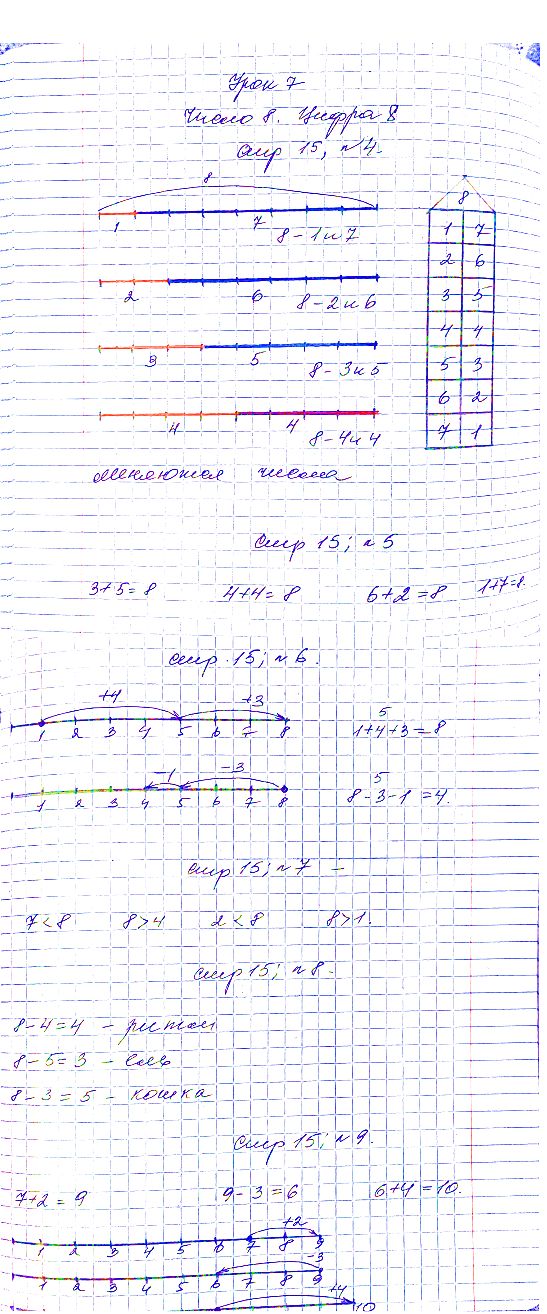 Урок 7
Число 8. Цифра 8
стр 15; №4.
8
1 7
8 - 1 и 7
2 6
8 - 2 и 6
3 5
8 - 3 и 5
4 4
8 - 4 и 4
8
1 7
2 6
3 5
4 4
5 3
6 2
7 1
числа
стр 15; №5
3+5=8 4+4=8 6+2=8 1+7=8
стр 15; №6.
+4 +3
1 2 3 4 5 6 7 8
5
1+4+3=8
-1 -3
1 2 3 4 5 6 7 8
5
8-3-1=4.
стр 15; №7
7<8 8>4 2<8 8>1.
стр 15; №8.
8-4=4 -
8-5=3 -
8-3=5 - кошка
стр 15; №9.
7+2=9 9-3=6 6+4=10.
+2
1 2 3 4 5 6 7 8 9
-3
1 2 3 4 5 6 7 8 9
+4
10